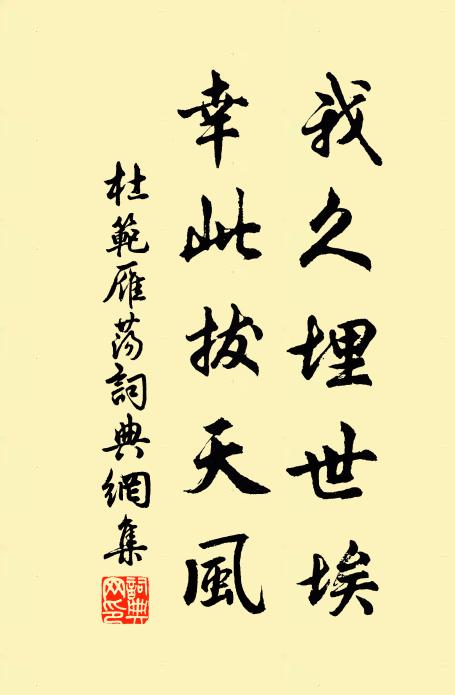 我久埋世埃
幸此拔天風
杜範雁蕩詞典網集
詞典網印